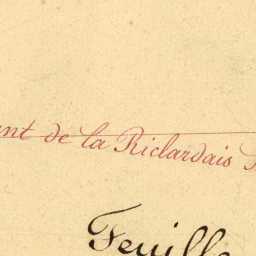 de la Riclardais
Feuille